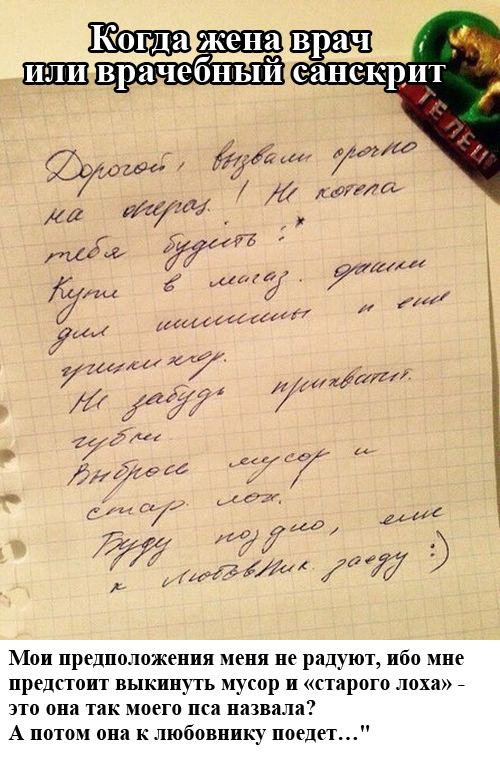 Когда жена врач
или врачебный санскрит
ТЕЛЕЦ
Дорогой, вызвали срочно
на операц.! Не хотела
тебя будить :*
Купи в магаз.
для и еще
Не забудь прихватит.
губки.
Выброси мусор и
стар. лох!
Буду поздно, еще
к любовник. заеду :)
Мои предположения меня не радуют, ибо мне
предстоит выкинуть мусор и «старого лоха» -
это она так моего пса назвала?
А потом она к любовнику поедет…"